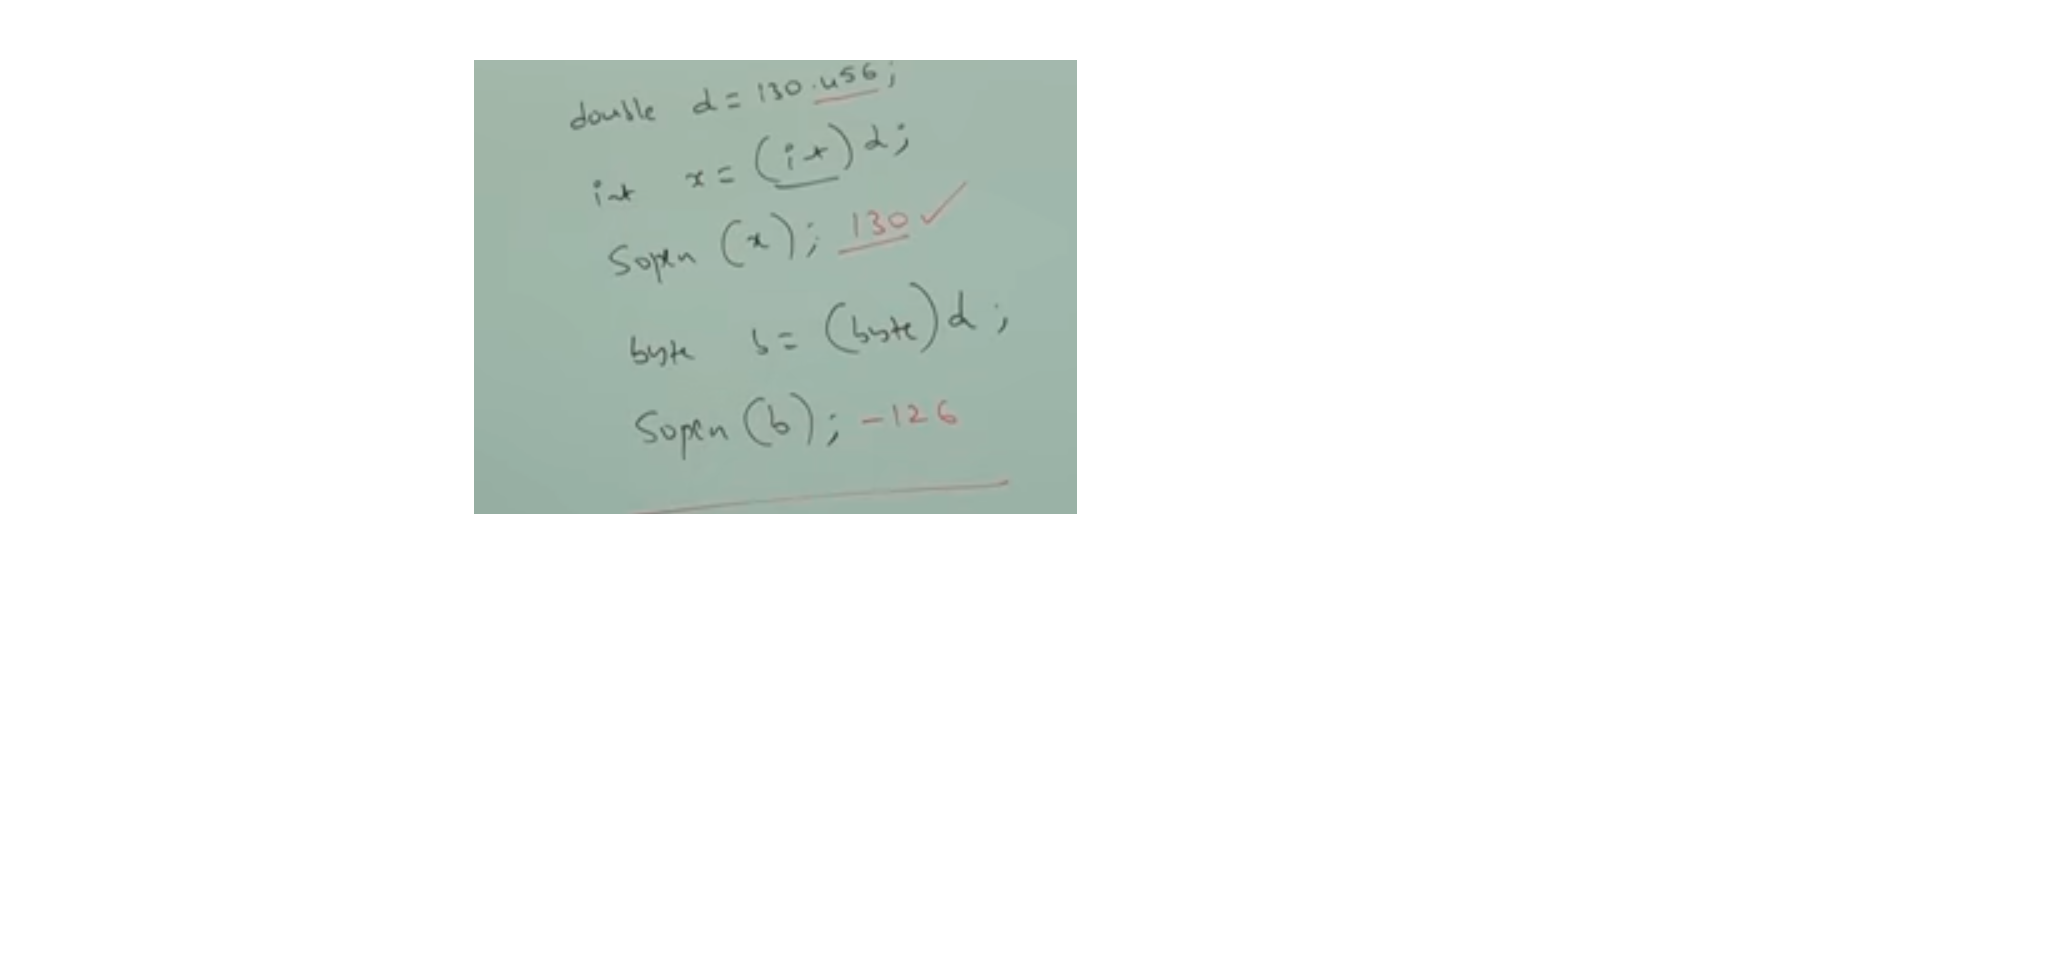 double d = 130.456;
int x = (int) d;
Sopln (x); 130 ✓
byte b = (byte) d;
Sopln (b); -126